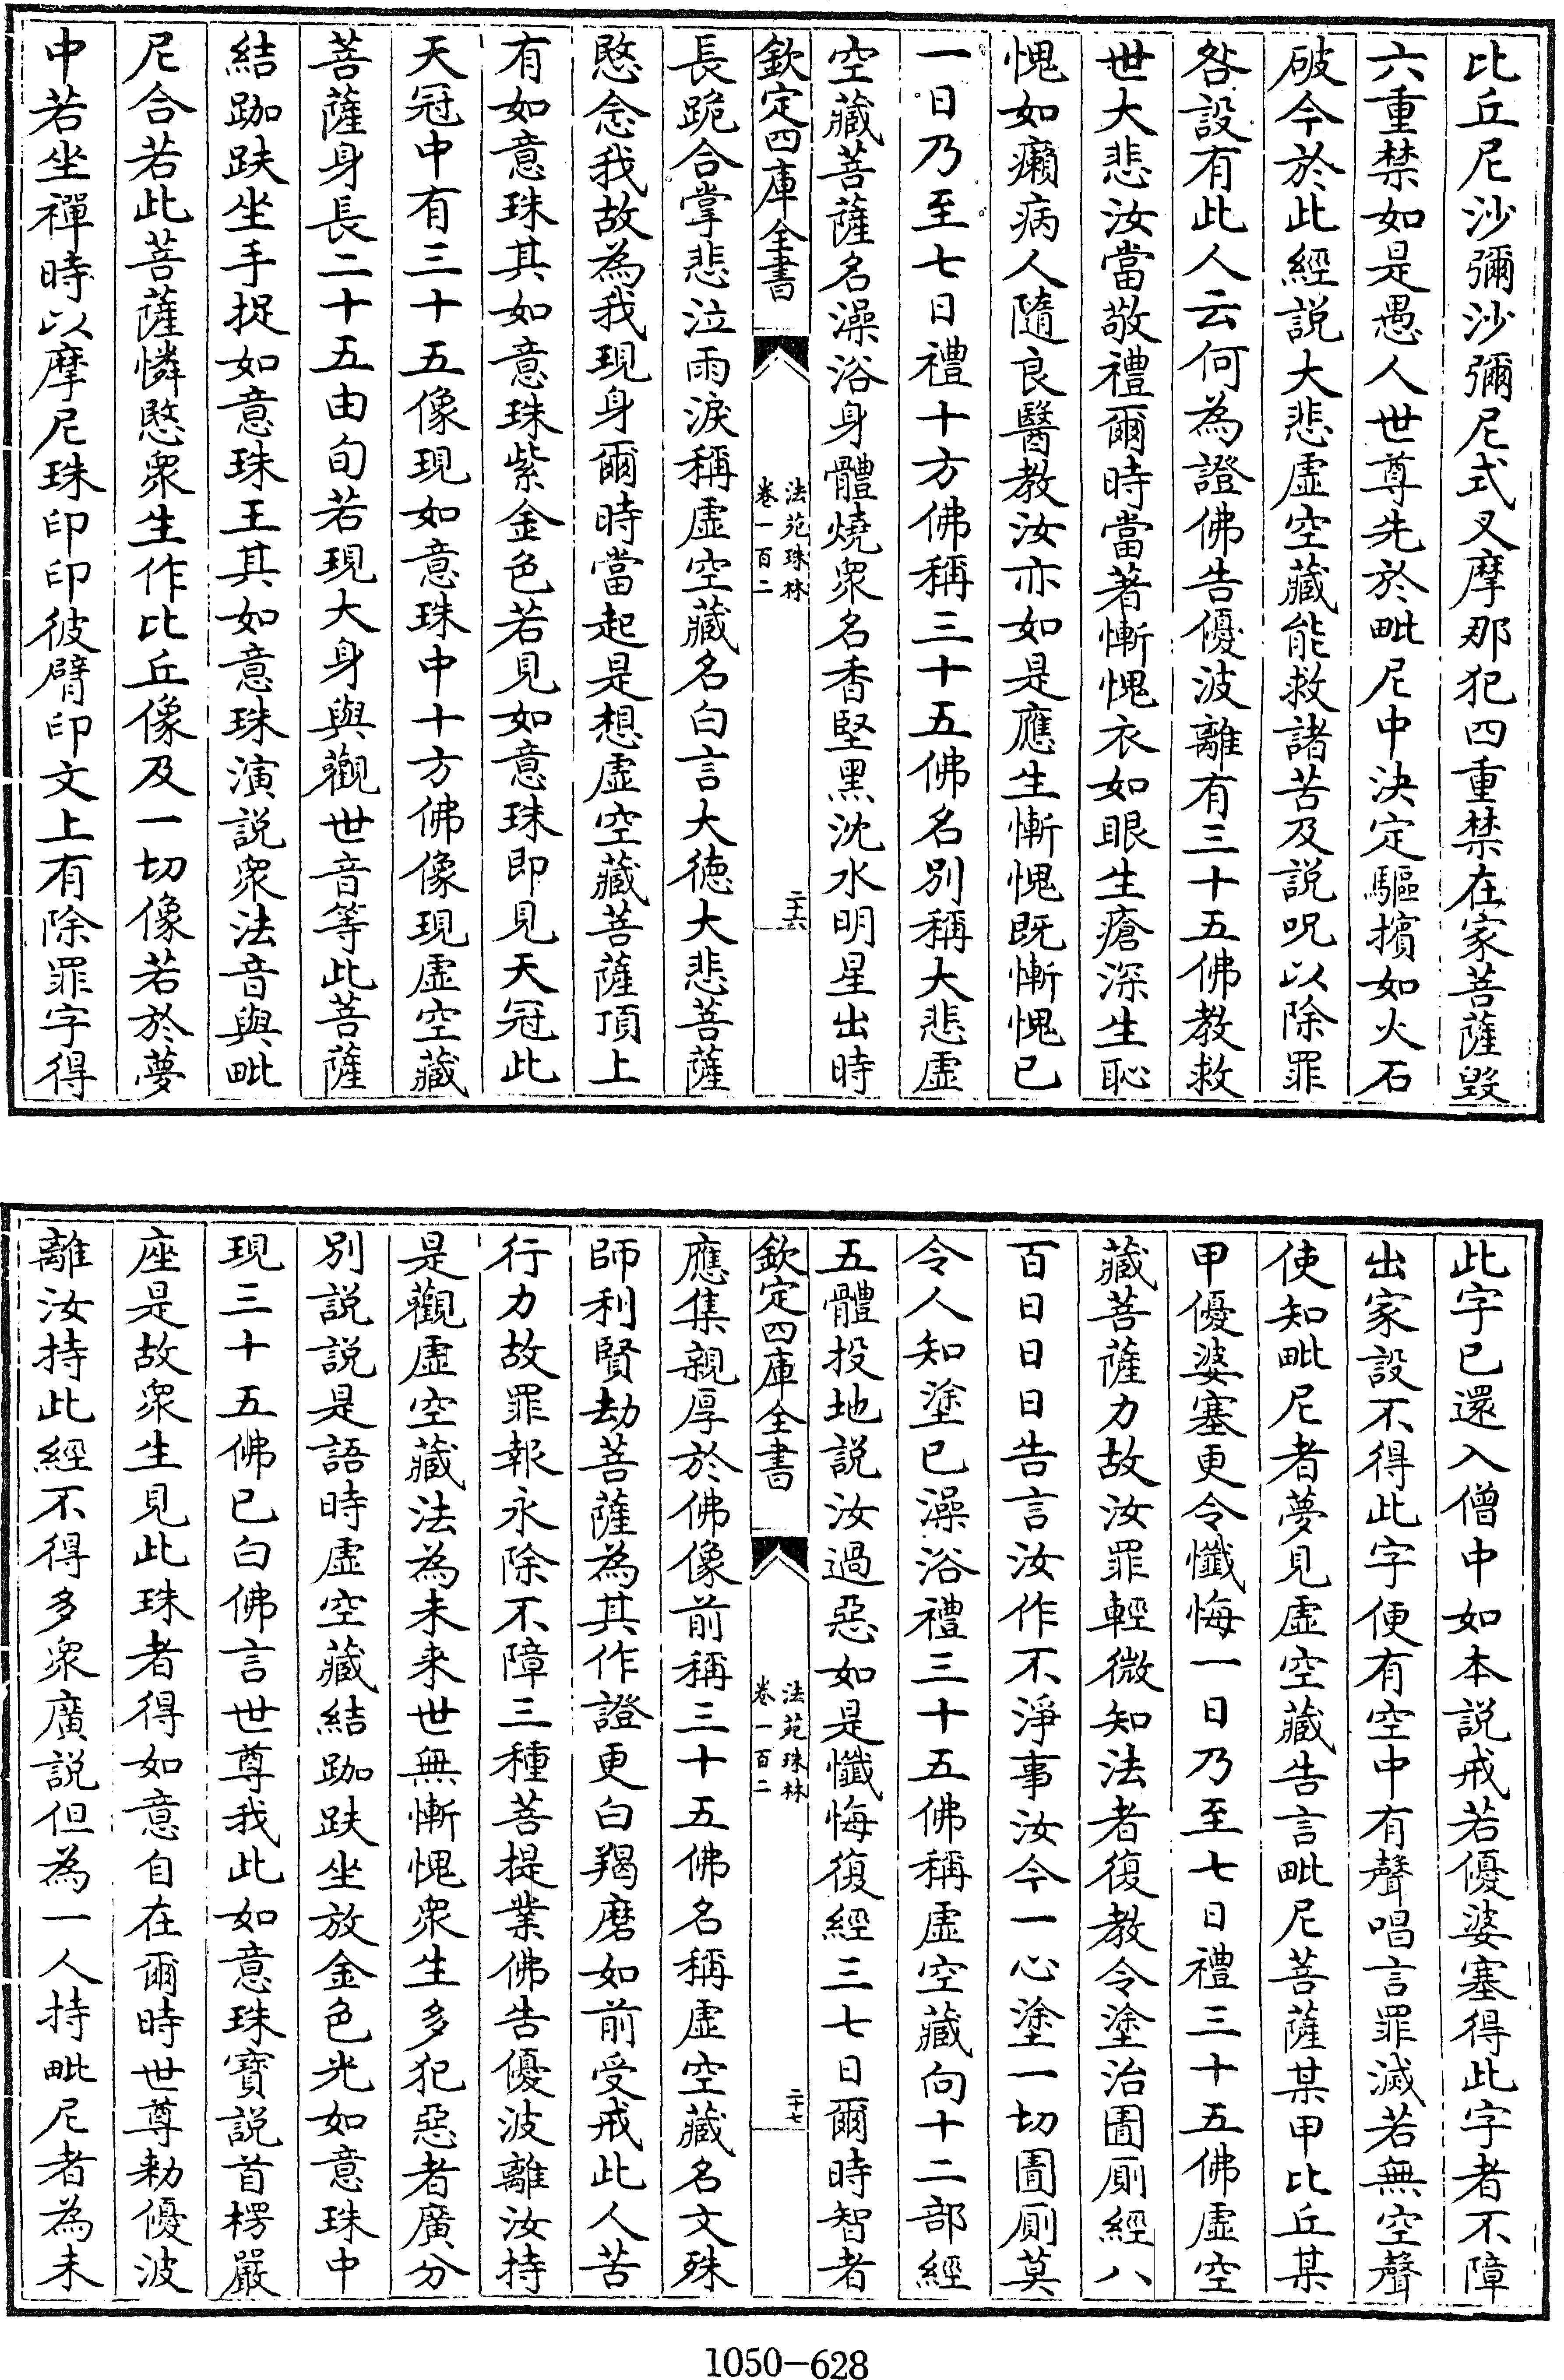 比丘尼沙彌沙彌尼式叉摩那犯四重禁在家菩薩毀
六重禁如是愚人世尊先於毗尼中決定驅擯如火石
破今於此經說大悲虛空藏能救諸苦及說呪以除罪
咎設有此人云何為證佛告優波離有三十五佛教救
世大悲汝當敬禮爾時當著慚愧衣如眼生瘡深生恥
愧如癩病人隨良醫教汝亦如是應生慚愧既慚愧已
一日乃至七日禮十方佛稱三十五佛名別稱大悲虛
空藏菩薩名澡浴身體燒衆名香堅黑沈水明星出時
欽定四庫全書
法苑珠林
卷一百二
二十六
長跪合掌悲泣雨淚稱虛空藏名白言大德大悲菩薩
愍念我故為我現身爾時當起是想虛空藏菩薩頂上
有如意珠其如意珠紫金色若見如意珠即見天冠此
天冠中有三十五像現如意珠中十方佛像現虛空藏
菩薩身長二十五由旬若現大身與觀世音等此菩薩
結跏趺坐手捉如意珠王其如意珠演說衆法音與毗
尼合若此菩薩憐愍衆生作比丘像及一切像若於夢
中若坐禪時以摩尼珠印印彼臂印文上有除罪字得
此字已還入僧中如本說戒若優婆塞得此字者不障
出家設不得此字便有空中有聲唱言罪滅若無空聲
使知毗尼者夢見虛空藏告言毗尼菩薩某甲比丘某
甲優婆塞更令懺悔一日乃至七日禮三十五佛虛空
藏菩薩力故汝罪輕微知法者復教令塗治圊厠經八
百日日日告言汝作不淨事汝今一心塗一切圊厠莫
令人知塗已澡浴禮三十五佛稱虛空藏向十二部經
五體投地說汝過惡如是懺悔復經三七日爾時智者
欽定四庫全書
法苑珠林
卷一百二
二十七
應集親厚於佛像前稱三十五佛名稱虛空藏名文殊
師利賢劫菩薩為其作證更白羯磨如前受戒此人苦
行力故罪報永除不障三種菩提業佛告優波離汝持
是觀虛空藏法為未來世無慚愧衆生多犯惡者廣分
別說說是語時虛空藏結跏趺坐放金色光如意珠中
現三十五佛已白佛言世尊我此如意珠寶說首楞嚴
座是故衆生見此珠者得如意自在爾時世尊勑優波
離汝持此經不得多衆廣說但為一人持毗尼者為未
1050-628